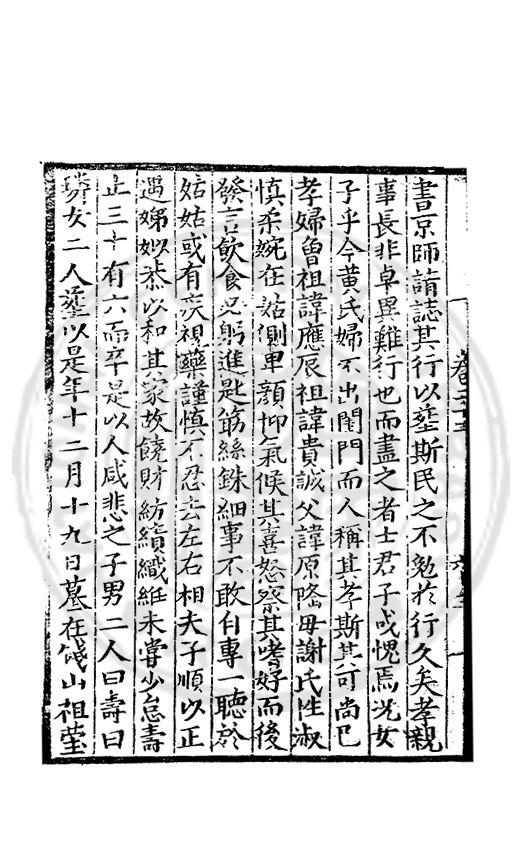 書京師請誌其行以塟斯民之不勉於行久矣孝親
事長非卓異難行也而盡之者士君子或愧焉况女
子乎今黄氏婦不出閨門而人稱其孝斯其可尚已
孝婦曾祖諱應辰祖諱貴誠父諱原隆母謝氏性淑
慎柔婉在姑側卑顔仰氣候其喜怒察其嗜好而後
發言飲食必躬進匙筯絲銖細事不敢自專一聽於
姑姑或有疾視藥謹慎不忍去左右相夫子順以正
遇娣姒恭以和其家故饒財紡績織絍未嘗少怠壽
止三十有六而卒是以人咸悲之子男二人曰壽曰
璘女二人塟以是年十二月十九日墓在筏山祖塋